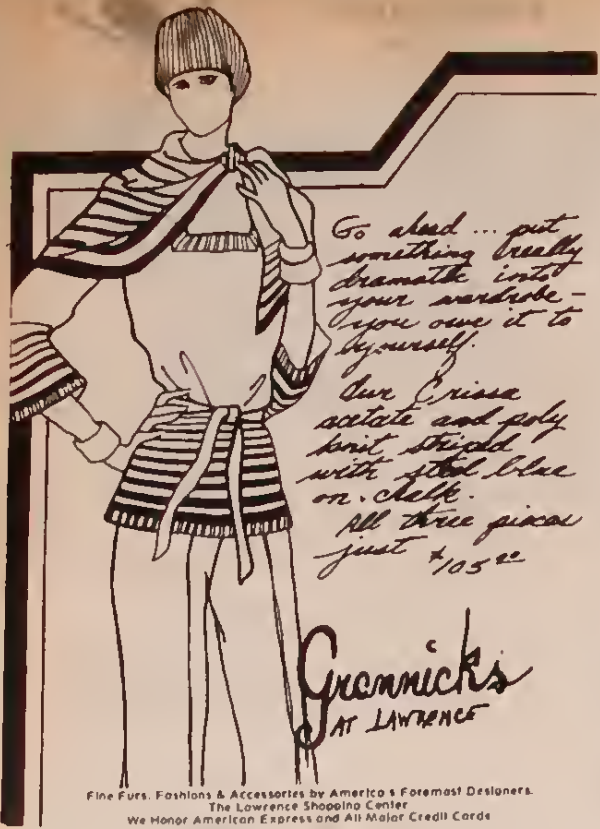 Go ahead ... put
something really
dramatic into
your wardrobe -
you owe it to
yourself.
Our Crissa
acetate and poly
knit striped
with steel blue
on chalk.
All three pieces
just $105.00
Grannicks
AT LAWRENCE
Fine Furs, Fashions & Accessories by America's Foremost Designers.
The Lawrence Shopping Center
We Honor American Express and All Major Credit Cards